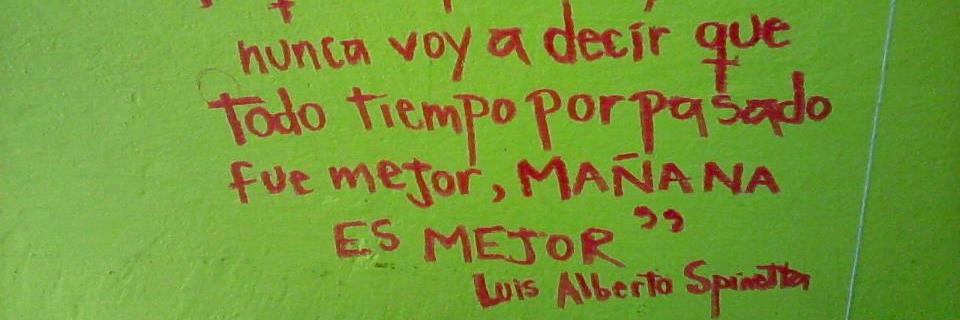 nunca voy a decir que
todo tiempo por pasado
fue mejor, MAÑANA
ES MEJOR”
Luis Alberto Spinetta